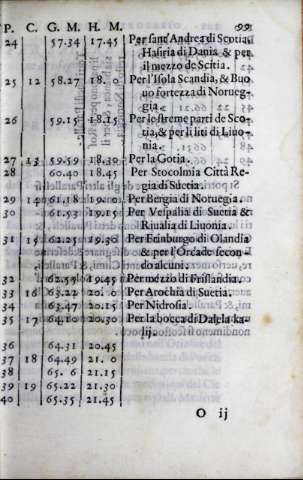 P. C. G. M. H. M. 99
24 57.34 17.45 Per sant'Andrea di Scotia.
Hafiria di Dania & per
il mezzo de Scitia.
25 12 58.27 18. 0 Per l'Isola Scandia, & Buo
uo fortezza di Norueg-
gia.
26 59.15 18.15 Per le streme parti de Sco-
tia, & per li liti di Liuo-
nia.
27 13 59.59 18.30 Per la Gotia.
28 60.40 18.45 Per Stocolmia Città Re-
gia di Suetia.
29 14 61.18 19. 0 Per Bergia di Noruegia.
30 61.53 19.15 Per Vespalia di Suetia &
Riualia di Liuonia.
31 15 62.25 19.30 Per Frinburgo di Olandia
& per l'Orcade secon-
do alcuni.
32 62.54 19.45 Per mezzo di Frislandia.
33 16 63.22 20. 0 Per Arochia di Suetia.
34 63.47 20.15 Per Nidrosia.
35 17 64.10 20.30 Per la bocca di Dalela ka-
lij.
36 64.31 20.45
37 18 64.49 21. 0
38 65. 6 21.15
39 19 65.22 21.30
40 65.35 21.45
O ij